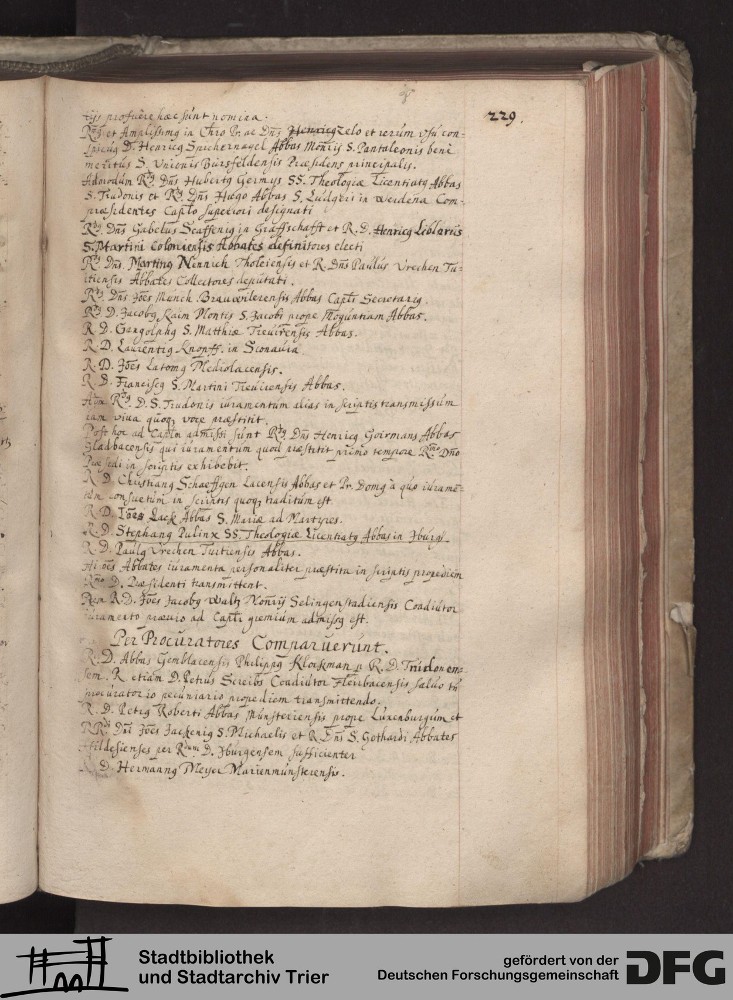 229.
tijs profuere haec sunt nomina.
Rdg et Amplissimg in Chro Pr. ac Dns Henricg Zelo et rerum usu con=
spicug D. Henricg Spichernagel Abbas Monrij S. Pantaleonis bene
meritus S. Unionis Bursfeldensis Praesidens principalis.
Admodum Rdg Dns Hubertg Germijs SS. Theologiae Licentiatg Abbas
S. Trudonis et Rdg Dns Hugo Abbas S. Ludgeri in Werdena Com=
praesidentes Caplo superiori designati
Rdg Dns Gabelus Scaffenig in Graffschafft et R. D. Henricg Liblariis
S. Martini Coloniensis Abbates definitores electi
Rdg Dns. Marting Nennich Tholeiensis et R. Dns Paulus Vrechen Tui=
tiensis Abbates Collectores deputati.
Rdg Dns Joes Munch Brauwilerensis Abbas Capli Secretarig.
Rdg D. Jacobg Raim Montis S. Jacobi prope Moguntiam Abbas.
R. D. Gangolphg S. Matthiae Trevirensis Abbas.
R. D. Laurentig Knopff. in Sconavia.
R. D. Joes Latomg Mediolacensis.
R. D. Franciscg S. Martini Trevirensis Abbas.
Rdg D. S. Trudonis iuramentum alias in scriptis transmissum
iam viva quoq voce praestitit.
Post hoc ad Caplm admissi sunt Rdg Dns Henricg Goirmans Abbas
Gladbacensis qui iuramentum quod praestitit primo tempore Rmo Dno
Praesidi in scriptis exhibebit.
R. D. Christiang Schaeffgen Lacensis Abbas et Pr. Domg a quo iurame=
tum consuetum in scriptis quoq traditum est.
R. D. Joes Lack Abbas S. Mariae ad Martyres.
R. D. Stephang Pulinx SS. Theologiae Licentiatg Abbas in Iburg.
R. D. Paulg Vrechen Tuitiensis Abbas.
Hi oes Abbates iuramenta personaliter praestita in scriptis propediem
Rmo D. Praesidenti transmittent.
Item R. D. Joes Jacobg Waltz Monrij Selingenstadiensis Coadiutor
iuramento praevio ad Capli gremium admissg est.
Per Procuratores Comparuerunt.
R. D. Abbas Gemblacensis Philippg Klockman p R. D. Trudonen=
sem. R. etiam D. Petrus Scribs Coadiutor Fleirbacensis salvo tn
procuratorio pecuniario propediem transmittendo.
R. D. Petrg Roberti Abbas Munsteriensis prope Luxenburgum et
RRdi Dni Joes Jackenig S. Michaelis et R. Dns S. Gothardi Abbates
Hildesienses per Rdum D. Iburgensem sufficienter
R. D. Hermanng Meyer Marienmunsterensis.
Stadtbibliothek
und Stadtarchiv Trier
gefördert von der
Deutschen Forschungsgemeinschaft
DFG